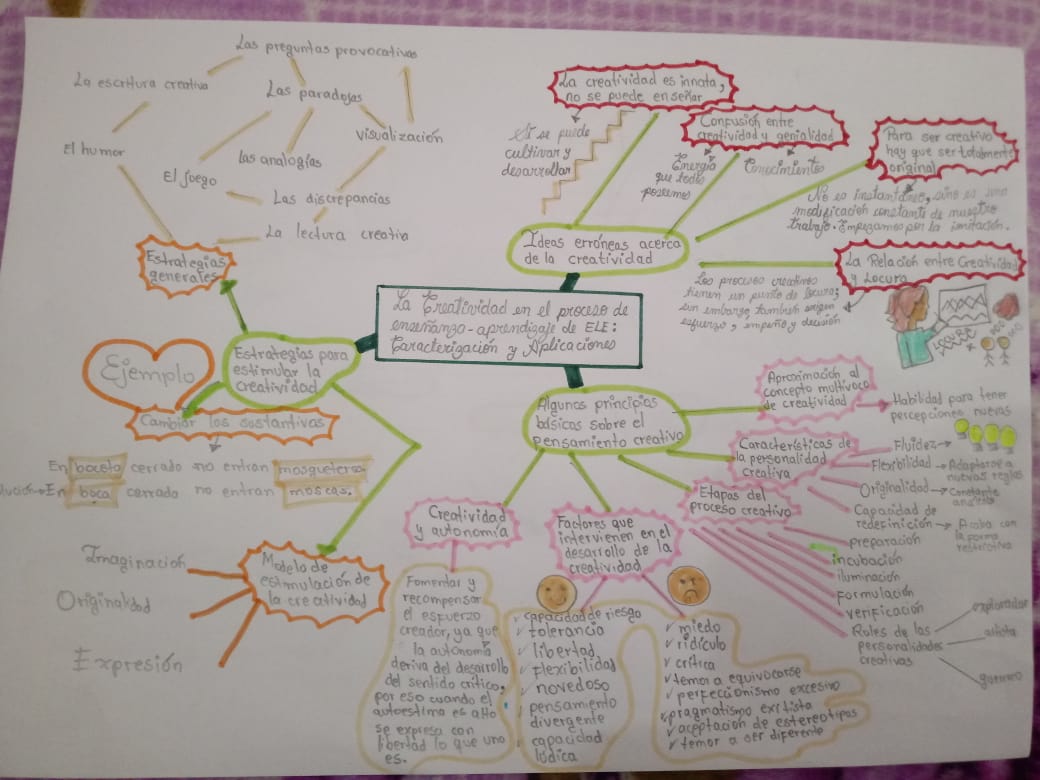 La Creatividad en el proceso de
enseñanza-aprendizaje de ELE:
Caracterización y Aplicaciones
Ideas erróneas acerca
de la creatividad
La creatividad es innata,
no se puede enseñar
se puede
cultivar y
desarrollar
Confusión entre
creatividad y genialidad
Energía
que todos
poseemos
Conocimientos
Para ser creativo
hay que ser totalmente
original
No es instantáneo, sino es una
modificación constante de nuestro
trabajo. Empezamos por la imitación.
La Relación entre Creatividad
y Locura
Los procesos creativos
tienen un punto de locura;
sin embargo, también exigen
esfuerzo, empeño y decisión
Algunos principios
básicos sobre el
pensamiento creativo
Aproximación al
concepto multívoco
de creatividad
Habilidad para tener
percepciones nuevas
Características de
la personalidad
creativa
Fluidez
Flexibilidad → Adaptarse a
nuevas reglas
Originalidad → Constante
Capacidad de
redefinición → Acaba con
la forma
Etapas del
proceso creativo
preparación
incubación
iluminación
formulación
verificación
Roles de las
personalidades
creativas
explorador
artista
guerrero
Factores que
intervienen en el
desarrollo de la
creatividad
✓ capacidad de riesgo
✓ tolerancia
✓ libertad
✓ flexibilidad
✓ novedoso
✓ pensamiento
divergente
✓ capacidad
lúdica
✓ miedo
✓ ridículo
✓ crítica
✓ temor a equivocarse
✓ perfeccionismo excesivo
✓ pragmatismo exitista
✓ aceptación de estereotipos
✓ temor a ser diferente
Creatividad
y autonomía
Fomentar y
recompensar
el esfuerzo
creador, ya que
la autonomía
deriva del desarrollo
del sentido crítico,
por eso cuando el
autoestima es alto
se expresa con
libertad lo que uno
es.
Estrategias para
estimular la
creatividad
Estrategias
generales
El humor
La escritura creativa
Las preguntas provocativas
Las paradojas
Visualización
las analogías
El juego
Las discrepancias
La lectura creativa
Ejemplo
Cambiar los sustantivos
En boceto cerrado no entran mosqueteros.
lución → En boca cerrado no entran moscas.
Modelo de
estimulación de
la creatividad
Imaginación
Originalidad
Expresión